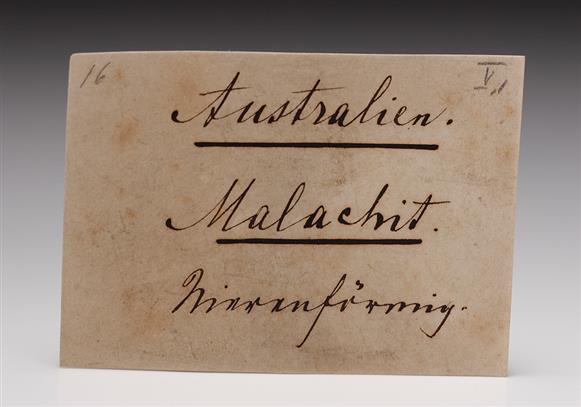 16
V,1
Australien.
Malachit.
Nierenförmig.